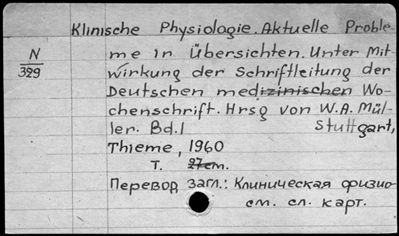 Klinische Physiologie. Aktuelle Proble-
N
329
me in Übersichten. Unter Mit-
wirkung der Schriftleitung der
Deutschen medizinischen Wo-
chenschrift. Hrsg von W.A. Mül-
ler. Bd.1 Stuttgart,
Thieme, 1960
T. 27cm.
Перевод загл.: Клиническая физио-
см. сл. карт.